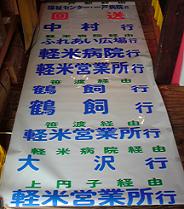 福祉センター・一戸病院行
回送
中村行
軽米病院経由
ふれあい広場行
軽米病院行
軽米営業所行
鶴飼行
笹渡経由
鶴飼行
笹渡経由
軽米営業所行
軽米病院経由
大沢行
上円子経由
軽米営業所行